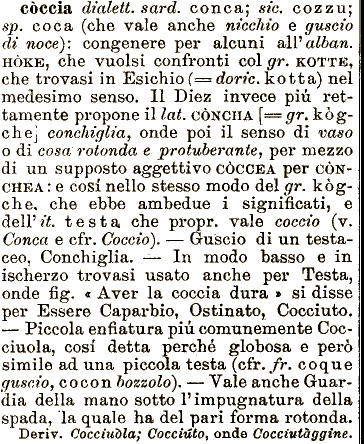 còccia dialett. sard. conca; sic. cozzu;
sp. coca (che vale anche nicchio e guscio
di noce): congenere per alcuni all'alban.
HÒKE, che vuolsi confronti col gr. KOTTE,
che trovasi in Esichio (= doric. kotta) nel
medesimo senso. Il Diez invece piú ret-
tamente propone il lat. CÒNCHA [= gr. kòg-
che] conchiglia, onde poi il senso di vaso
o di cosa rotonda e protuberante, per mezzo
di un supposto aggettivo CÒCCEA per CÒN-
CHEA: e cosí nello stesso modo del gr. kòg-
che, che ebbe ambedue i significati, e
dell'it. testa che propr. vale coccio (v.
Conca e cfr. Coccio). — Guscio di un testa-
ceo, Conchiglia. — In modo basso e in
ischerzo trovasi usato anche per Testa,
onde fig. « Aver la coccia dura » si disse
per Essere Caparbio, Ostinato, Cocciuto.
— Piccola enfiatura piú comunemente Coc-
ciuola, cosí detta perché globosa e però
simile ad una piccola testa (cfr. fr. coque
guscio, cocon bozzolo). — Vale anche Guar-
dia della mano sotto l'impugnatura della
spada, la quale ha del pari forma rotonda.
Deriv. Cocciuòla; Cocciúto, onde Cocciutàggine.